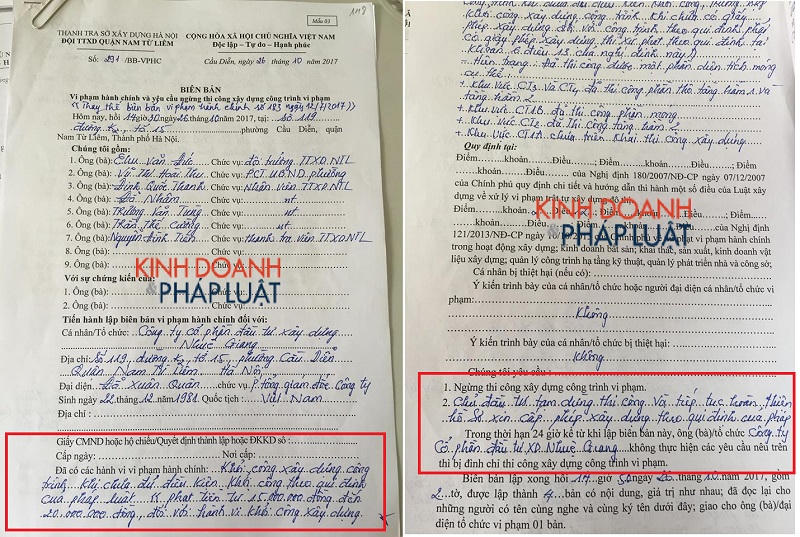 118
Mẫu 03
THANH TRA SỞ XÂY DỰNG HÀ NỘI
ĐỘI TTXD QUẬN NAM TỪ LIÊM
CỘNG HÒA XÃ HỘI CHỦ NGHĨA VIỆT NAM
Độc lập - Tự do – Hạnh phúc
Số: 291 /BB-VPHC
Cầu Diễn, ngày 26 tháng 10 năm 2017
BIÊN BẢN
Vi phạm hành chính và yêu cầu ngừng thi công xây dựng công trình vi phạm
<< Thay thế biên bản vi phạm hành chính số 183 ngày 12/7/2017>>
Hôm nay, hồi 14 giờ 30 ngày 26 tháng 10 năm 2017, tại số 119
đường K2, tổ 15 phường Cầu Diễn, quận
Nam Từ Liêm, Thành phố Hà Nội.
Chúng tôi gồm:
1. Ông (bà): Chu Văn Đức Chức vụ: đội trưởng TTXD.NTL
2. Ông (bà): Vũ Thị Hoài Thu Chức vụ: P.CT.UBND phường
3. Ông (bà): Đinh Quốc Thanh Chức vụ: Nhân viên TTXD.NTL
4. Ông (bà): Đỗ Nhâm Chức vụ: nt
5. Ông (bà): Trương Văn Tùng Chức vụ: nt
6. Ông (bà): Trần Thế Cường Chức vụ: nt
7. Ông (bà): Nguyễn Đình Tiến Chức vụ: thanh tra viên TTXD.NTL
8. Ông (bà): Chức vụ:
9. Ông (bà): Chức vụ:
Với sự chứng kiến của:
1. Ông (bà): Chức vụ:
2. Ông (bà): Chức vụ:
KINH DOANH
& PHÁP LUẬT
Tiến hành lập biên bản vi phạm hành chính đối với:
Cá nhân/Tổ chức: Công ty cổ phần đầu tư xây dựng
Nhuệ Giang
Địa chỉ: Số 119, đường K2, tổ 15, phường Cầu Diễn
Quận Nam Từ Liêm, Hà Nội
Đại diện: Đỗ Xuân Quân chức vụ: P. tổng giám đốc Công ty
Sinh ngày 22 tháng 12 năm 1981 Quốc tịch: Việt Nam
Địa chỉ:
Giấy CMND hoặc hộ chiếu/Quyết định thành lập hoặc ĐKKD số:
Cấp ngày: Nơi cấp:
Đã có các hành vi vi phạm hành chính: Khởi công xây dựng công
trình khi chưa đủ điều kiện khởi công theo qui định
của pháp luật << phạt tiền từ 15.000.000 đồng đến
20.000.000 đồng, đối với hành vi khởi công xây dựng
khởi công xây dựng công trình khi chưa có giấy
phép xây dựng
có giấy phép xây dựng thì xử phạt theo qui định tại
Khoản 6 điều 13 của nghị định này>>
- Hiện trạng đã thi công được một phần diện tích móng
cụ thể:
+ Khu vực CT3 và CT4 đã thi công phần thô tầng hầm 1 và
tầng hầm 2
+ Khu vực CT1B đã thi công phần móng
+ Khu vực CT2 đã thi công tầng hầm 2
+ Khu vực CT1A chưa triển khai thi công xây dựng
Quy định tại:
Điểm khoản Điều ; Điểm khoản Điều ;
Điểm khoản Điều ; Điểm khoản Điều ;
Điểm khoản Điều của Nghị định 180/2007/NĐ-CP ngày 07/12/2007
của Chính phủ quy định chi tiết và hướng dẫn thi hành một số điều của Luật xây
dựng về xử lý vi phạm trật tự xây dựng đô thị.
KINH DOANH
& PHÁP LUẬT
Điểm khoản Điều của Nghị định
121/2013/NĐ-CP ngày vi phạm hành chính
trong hoạt động xây dựng; kinh doanh bất động sản; khai thác, sản xuất, kinh doanh vật
liệu xây dựng; quản lý công trình hạ tầng kỹ thuật, quản lý phát triển nhà và công sở;
Cá nhân bị thiệt hại (nếu có):
Ý kiến trình bày của cá nhân/tổ chức hoặc người đại diện cá nhân/tổ chức vi
phạm:
Không
Ý kiến trình bày của cá nhân/tổ chức bị thiệt hại:
Không
Chúng tôi yêu cầu:
1. Ngừng thi công xây dựng công trình vi phạm.
2. Chủ đầu tư tạm dừng thi công và tiếp tục hoàn thiện
hồ sơ xin cấp phép xây dựng theo qui định của pháp
Trong thời hạn 24 giờ kể từ khi lập biên bản này, ông (bà)/tổ chức Công ty
Cổ phần đầu tư XD Nhuệ Giang không thực hiện các yêu cầu nêu trên
thì bị đình chỉ thi công xây dựng công trình vi phạm.
Biên bản lập xong hồi 17 giờ 50 ngày 26 tháng 10 năm 2017, gồm
2 tờ, được lập thành 4 bản có nội dung, giá trị như nhau; đã đọc lại cho
những người có tên cùng nghe và cùng ký tên dưới đây; giao cho ông (bà)/đại
diện tổ chức vi phạm 01 bản.